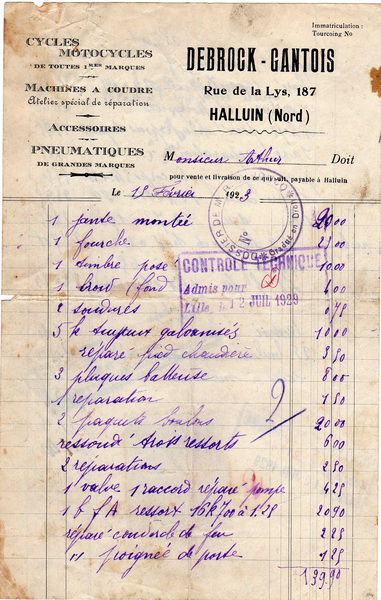 Immatriculation:
Tourcoing No
CYCLES
MOTOCYCLES
DE TOUTES 1RES MARQUES
MACHINES A COUDRE
Atelier spécial de réparation
ACCESSOIRES
PNEUMATIQUES
DE GRANDES MARQUES
DEBROCK-GANTOIS
Rue de la Lys, 187
HALLUIN (Nord)
Monsieur Doit
pour vente et livraison de ce qui suit, payable à Halluin
Le 15 Février 1929
DOSSIER DE
No
CONTROLE TECHNIQUE
Admis pour
Lille, le 12 JUIL 1929
1 jante montée 2000
1 fourche
1 timbre posé 1000
1 600
2 soudures 075
5 k tuyaux galvanisés 1000
réparé pied chaudière 350
3 plaques batteuse 800
1 réparation 150
2 paquets boulons 2000
ressoud ressorts 600
2 réparations 250
1 valve 1 raccord réparé pompe 425
1 b f A ressort 16k700 à 1.25 2090
réparé de feu 225
" poignée de porte 125
139.90